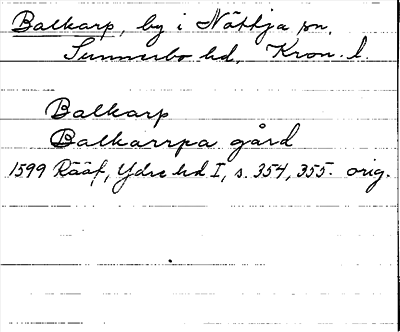 Balkarp, by i Nöttja sn.
Sunnerbo hd, Kron. l.
Balkarp
Balkarrpa gård
1599 Rääf, Ydre hd I, s. 354, 355. orig.